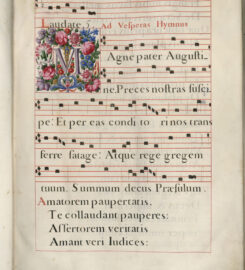 Laudate. Ad Vesperas Hymnus
Magne pater Augusti
ne. Preces nostras susci
pe: Et per eas condito ri nos trans
ferre satage: Atque rege gregem
tuum. Summum decus Præsulum.
Amatorem paupertatis,
Te collaudant pauperes:
Assertorem veritatis
Amant veri Iudices: